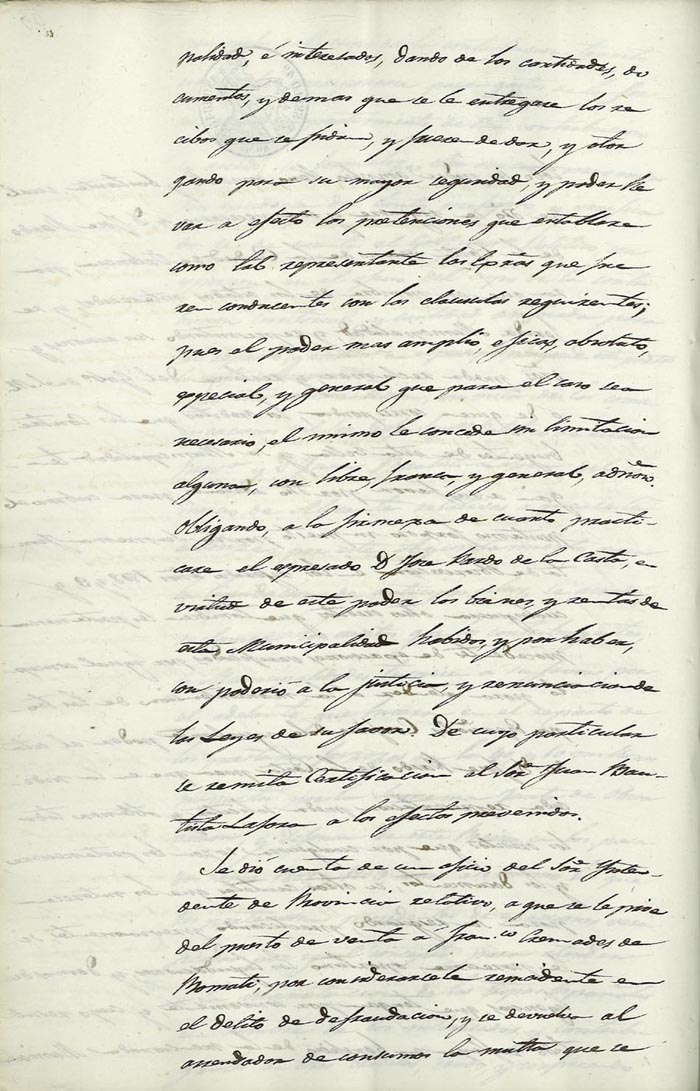 nalidad, é interesados, dando de las cantidades, do
cumentos, y demas que se le entregare los re
cibos que se pidan, y fueren de dar, y otor
gando para su mayor seguridad, y poder lle
var a efecto las pretenciones que entablare
como tal representante las Esc.ras que fue
ren conducentes con las clausulas requirentes;
pues el poder mas amplio, eficas, absoluto,
especial, y general que para el caso sea
necesario, el mismo le concede sin limitacion
alguna, con libre, franca, y general, admon.
Obligando, a la firmeza de cuanto practi-
care el espresado D. Jose Pardo de la Casta, en
virtud de este poder los bienes, y rentas de
esta Municipalidad habidos, y por haber,
con poderio a la justicia, y renunciacion de
las Leyes de su favor. De cuyo particular
se remita Certificacion al Sor. Juan Bau-
tista Lafora a los efectos prevenidos.
Se dió cuenta de un oficio del Sor. Inten-
dente de Provincia relativo, a que se le prive
del puesto de venta a Fran.co Cremades de
Bernabe, por considerarcele reincidente en
el delito de defraudacion, y se devuelva al
arrendador de consumos la multa que se